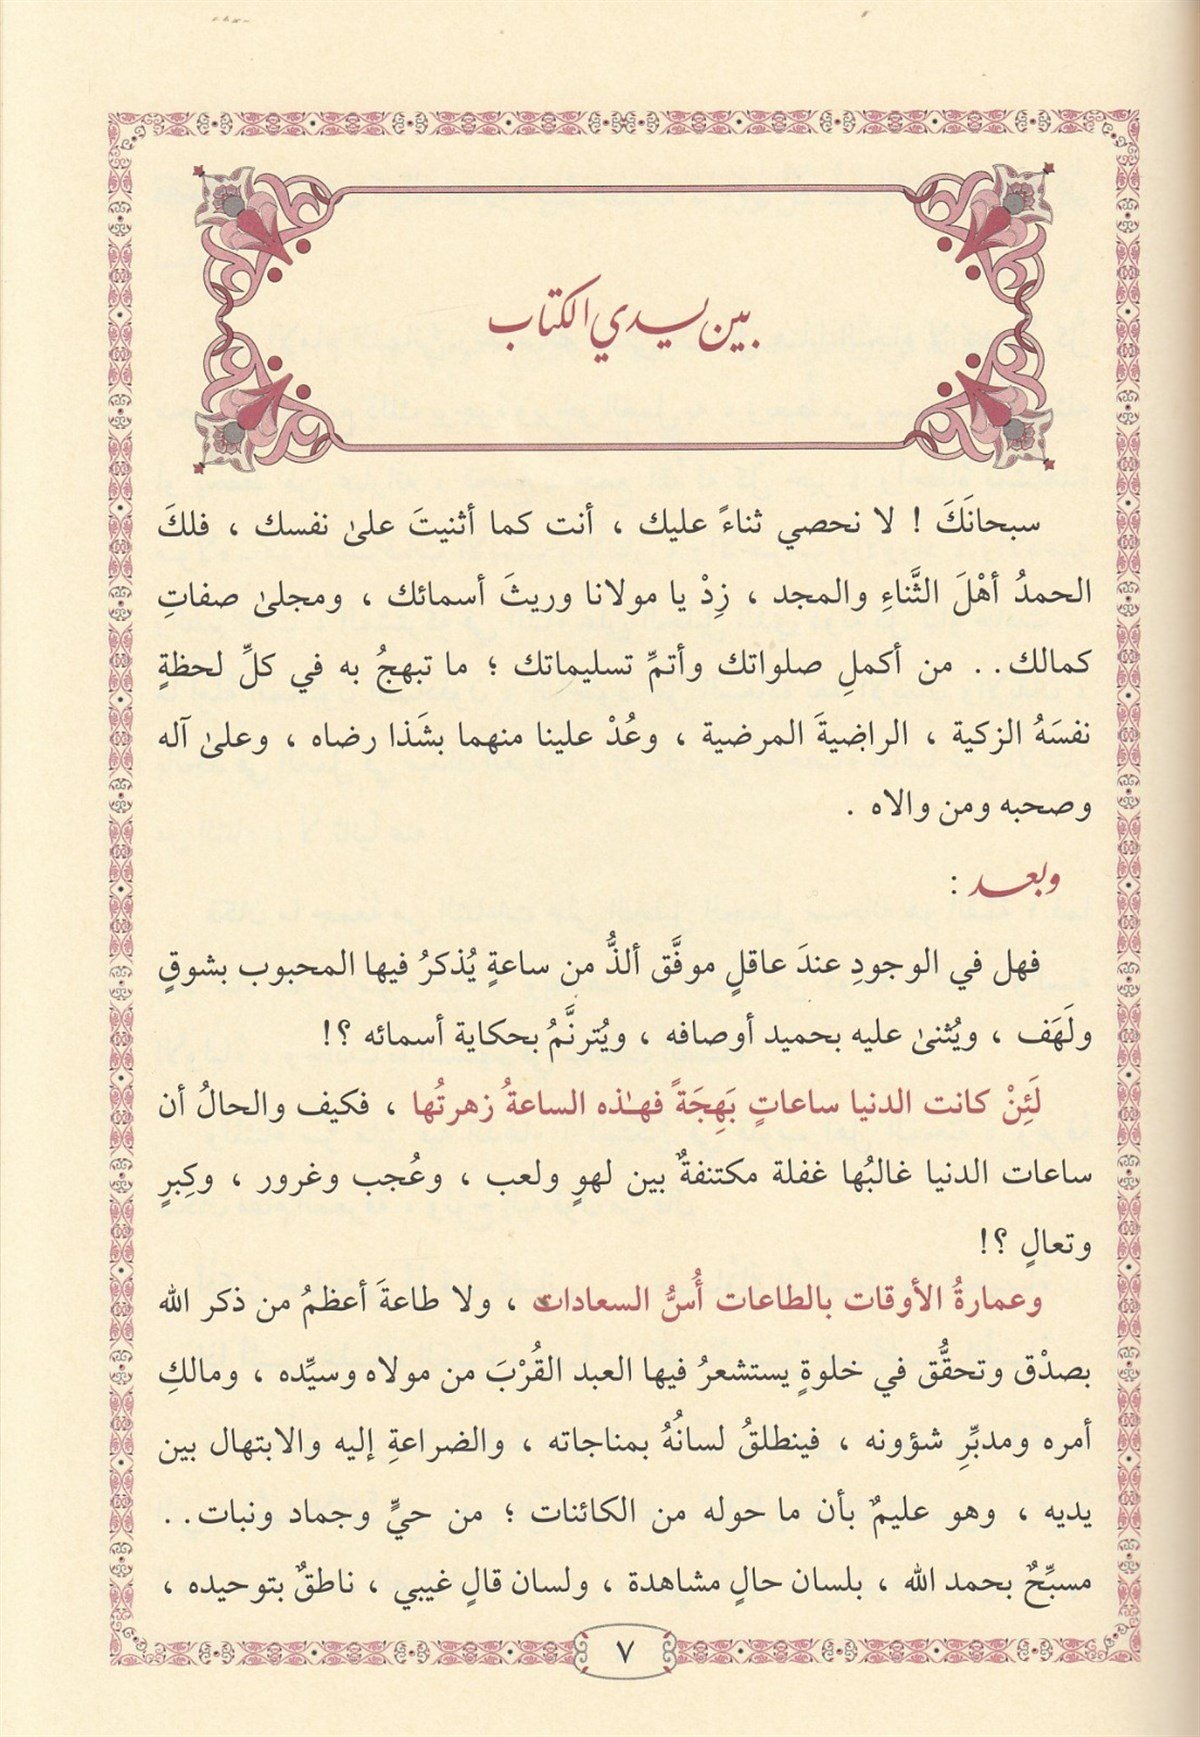 بين يدي الكتاب
سبحانَكَ ! لا نحصي ثناءً عليك ، أنت كما أثنيتَ علىٰ نفسك ، فلكَ
الحمدُ أهْلَ الثَّناءِ والمجد ، زِدْ يا مولانا وريثَ أسمائك ، ومجلىٰ صفاتِ
كمالك.. من أكملِ صلواتك وأتمِّ تسليماتك ؛ ما تبهجُ به في كلِّ لحظةٍ
نفسَهُ الزكية ، الراضيةَ المرضية ، وعُدْ علينا منهما بشَذا رضاه ، وعلىٰ آله
وصحبه ومن والاه .
وبعد :
فهل في الوجودِ عندَ عاقلٍ موفَّق ألذُّ من ساعةٍ يُذكرُ فيها المحبوب بشوقٍ
ولَهَف ، ويُثنىٰ عليه بحميد أوصافه ، ويُترنَّمُ بحكاية أسمائه ؟!
لَئِنْ كانت الدنيا ساعاتٍ بَهِجَةً فهـٰذه الساعةُ زهرتُها ، فكيف والحالُ أن
ساعات الدنيا غالبُها غفلة مكتنفةٌ بين لهوٍ ولعب ، وعُجب وغرور ، وكِبرٍ
وتعالٍ ؟!
وعمارةُ الأوقات بالطاعات أُسُّ السعادات ، ولا طاعةَ أعظمُ من ذكر الله
بصدْق وتحقُّق في خلوةٍ يستشعرُ فيها العبد القُرْبَ من مولاه وسيِّده ، ومالكِ
أمره ومدبِّرِ شؤونه ، فينطلقُ لسانُهُ بمناجاته ، والضراعةِ إليه والابتهال بين
يديه ، وهو عليمٌ بأن ما حوله من الكائنات ؛ من حيٍّ وجماد ونبات..
مسبِّحٌ بحمد الله ، بلسان حالٍ مشاهدة ، ولسان قالٍ غيبي ، ناطقٌ بتوحيده ،
٧